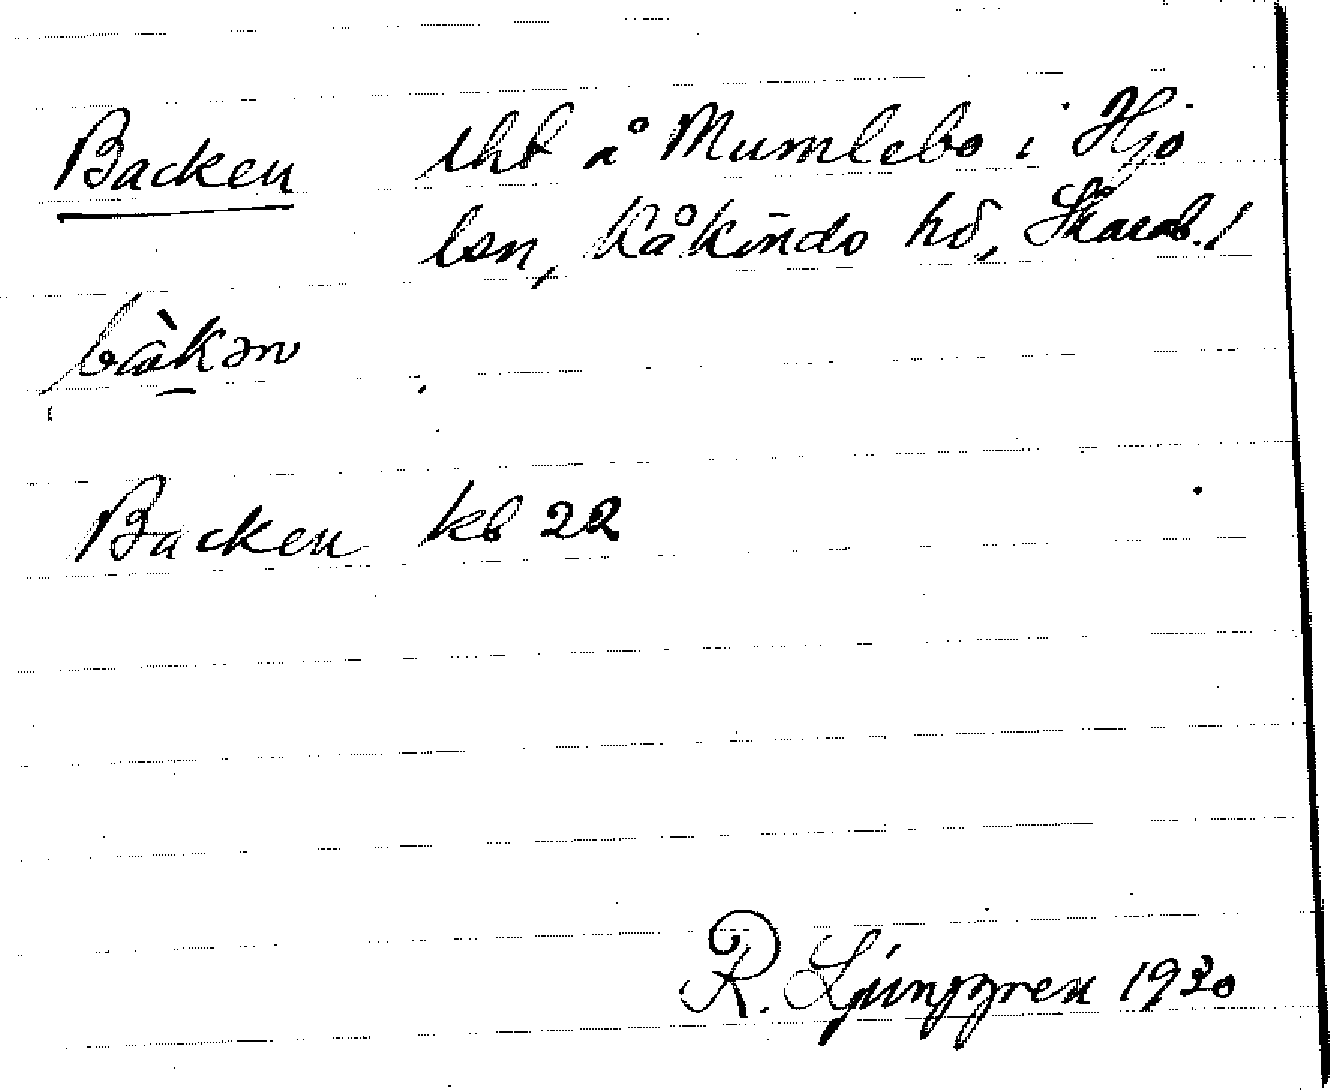 Backen lht å Mumlebo i Hjo
lsn, Kåkinds hd, Skarab. l
bàkən
Backen kb 22
R. Ljunggren 1930